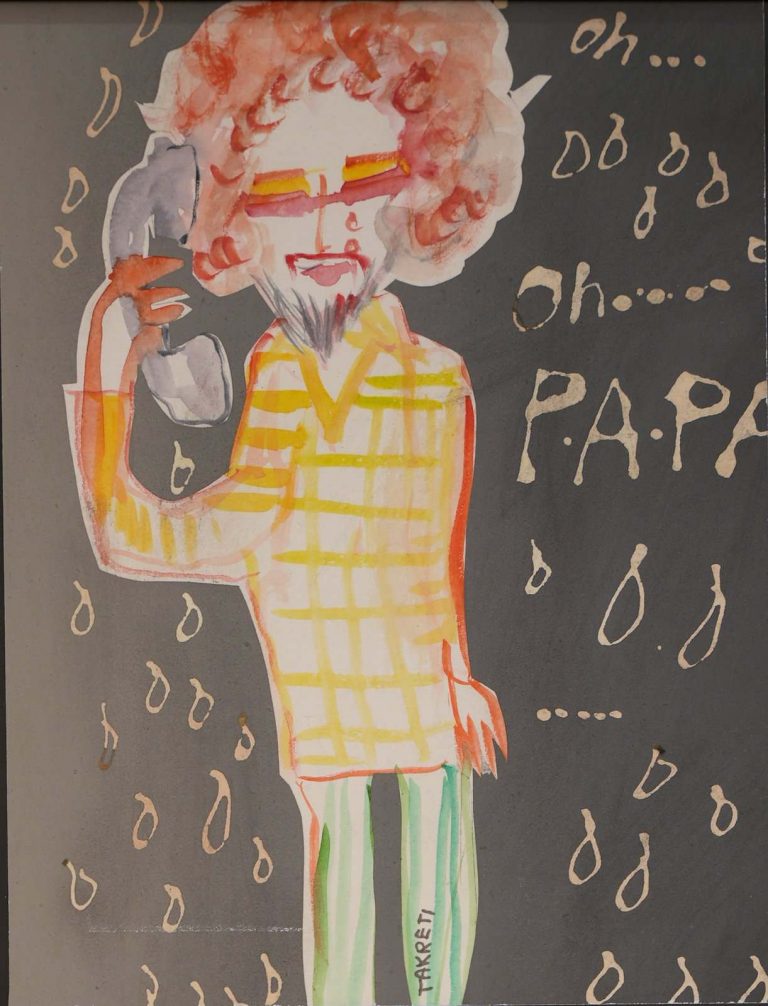 Oh...
Oh.....
P.A.PA
.....
TAKRETI